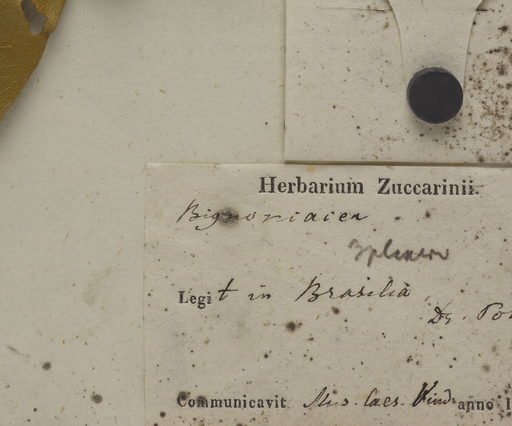 Herbarium Zuccarinii.
Bignoniacea
Legit in Brasilia
Dr. Po
Communicavit Mus. Caes. Vind. anno 1